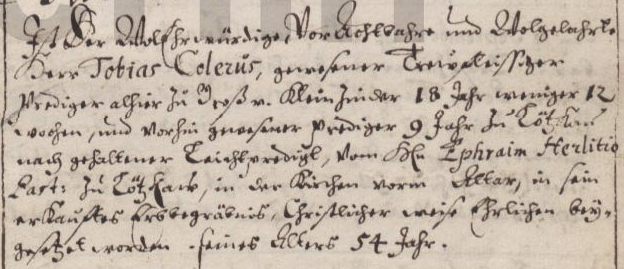 Ist der WolEhrwürdige, VorAchtbahre und Wolgelahrte
Herr Tobias Colerus, gewesener Trewfleissiger
Prediger alhier zu Groß u. Klein 18 Jahr weniger 12
wochen, und vorhin gewesener prediger 9 Jahr zu
nach gehaltener Leichpredigt, vom Hn Ephraim Herlitio
Past: zu in der Kirchen vorm Altar, in sein
erkaufftes Erbbegräbnis, Christlicher weise Ehrlichen bey-
gesetzet worden. seines Alters 54 Jahr.